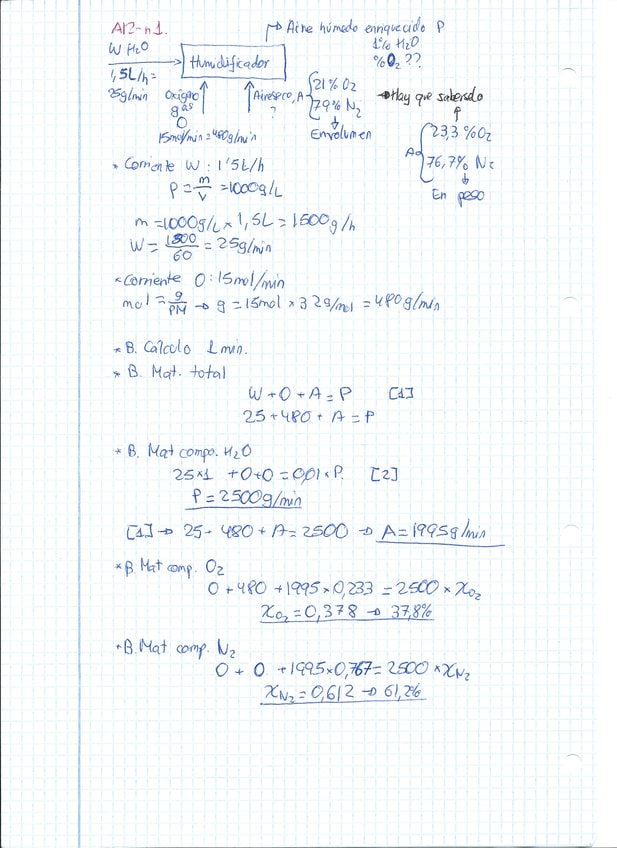 AP2-n1.
Aire húmedo enriquecido P
1% H2O
%O2 ??
W H2O
1,5L/h =
25g/min
Humidificador
Oxígeno
gas
O
15mol/min=480g/min
Aire seco, A
?
21% O2
79% N2
En volumen
Hay que saberselo
A
23,3 % O2
76,7% N2
En peso
* Corriente W : 1'5L/h
P = m/V = 1000g/L
m = 1000g/L × 1,5L = 1500g/h
W = 1500/60 = 25g/min
* Corriente O : 15mol/min
mol = g/PM → g = 15mol × 32g/mol = 480g/min
* B. Calculo 1min.
* B. Mat. total
W + O + A = P [1]
25 + 480 + A = P
* B. Mat compo. H2O
25×1 + 0 + 0 = 0,01 × P. [2]
P = 2500g/min
[1] → 25 + 480 + A = 2500 → A = 1995g/min
* B. Mat comp. O2
0 + 480 + 1995 × 0,233 = 2500 × XO2
XO2 = 0,378 → 37,8%
* B. Mat comp. N2
0 + 0 + 1995×0,767 = 2500 × XN2
XN2 = 0,612 → 61,2%